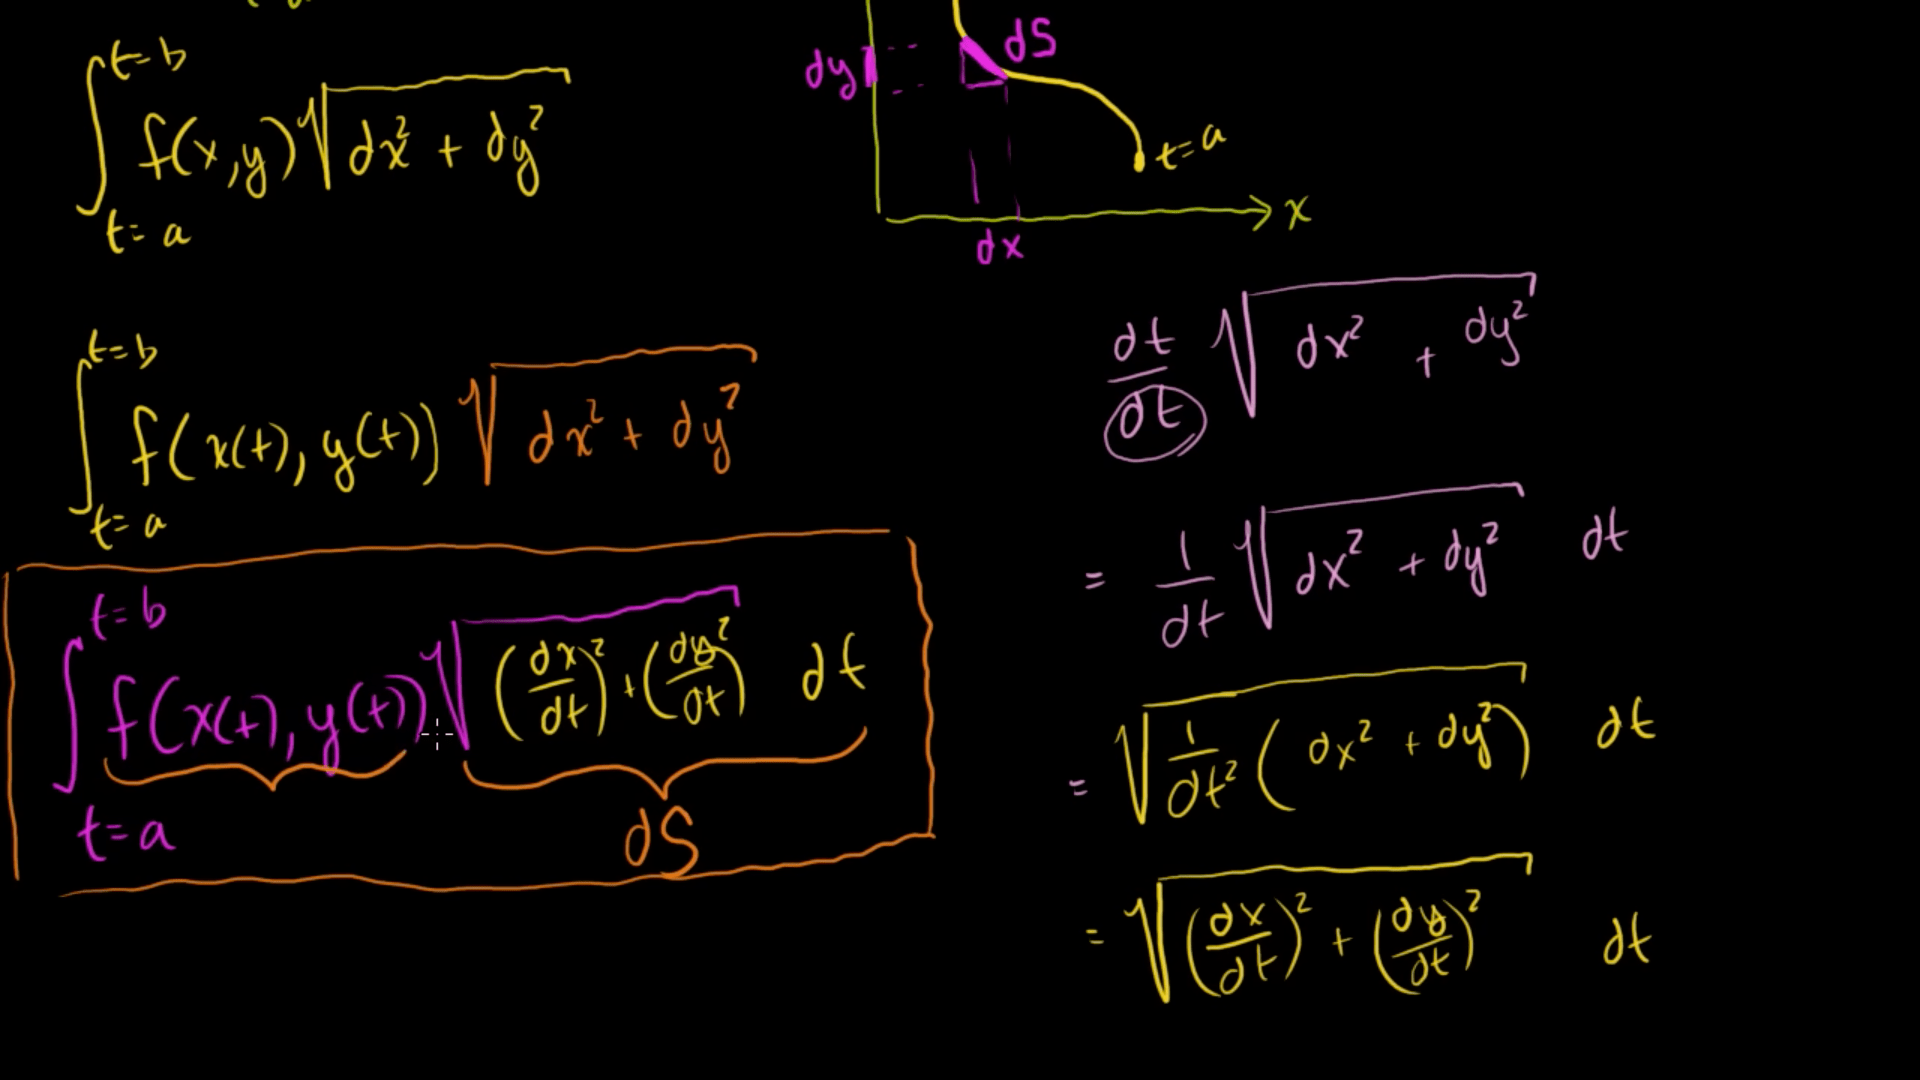 ∫_{t=a}^{t=b} f(x,y)√(dx² + dy²)
∫_{t=a}^{t=b} f(x(t), y(t)) √(dx² + dy²)
∫_{t=a}^{t=b} f(x(t), y(t)) √((dx/dt)² + (dy/dt)²) dt
dS
dy
dS
t=a
x
dx
dt/dt √(dx² + dy²)
= 1/dt √(dx² + dy²) dt
= √(1/dt² (dx² + dy²)) dt
= √((dx/dt)² + (dy/dt)²) dt